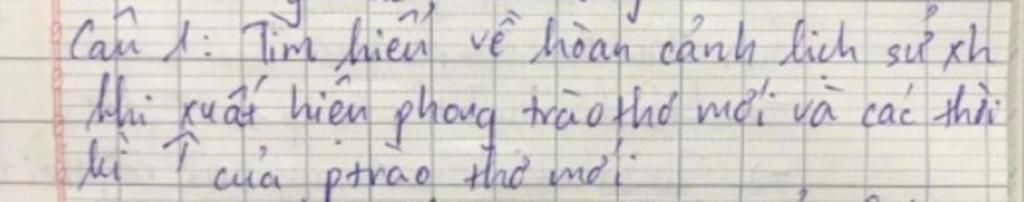 Câu 1: Tìm hiểu về hoàn cảnh lịch sử xh
khi xuất hiện phong trào thơ mới và các thời
kì ↑ của ptrào thơ mới